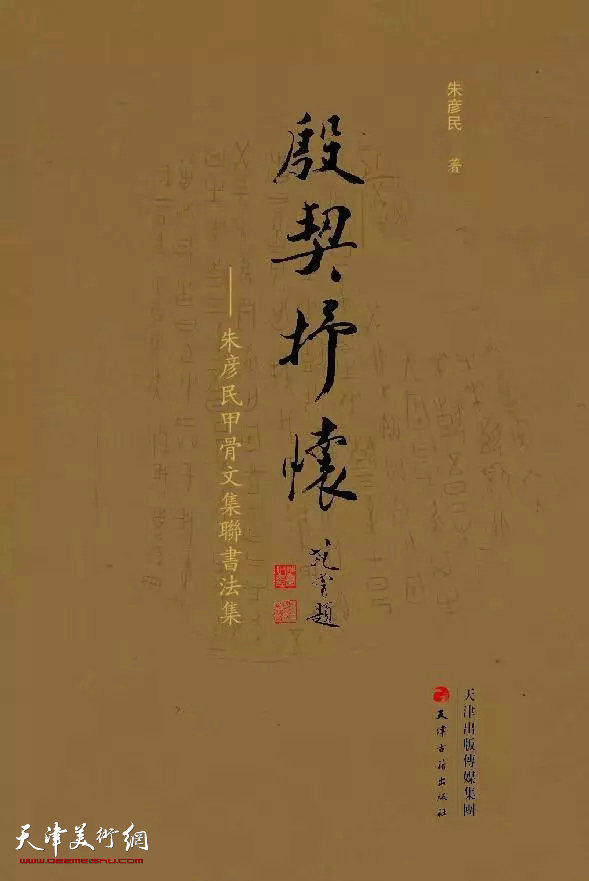 朱彦民 著
殷契抒懷
——朱彦民甲骨文集聯書法集
題
天津出版傳媒集團
天津古籍出版社
天津美術網
www.022meishu.com